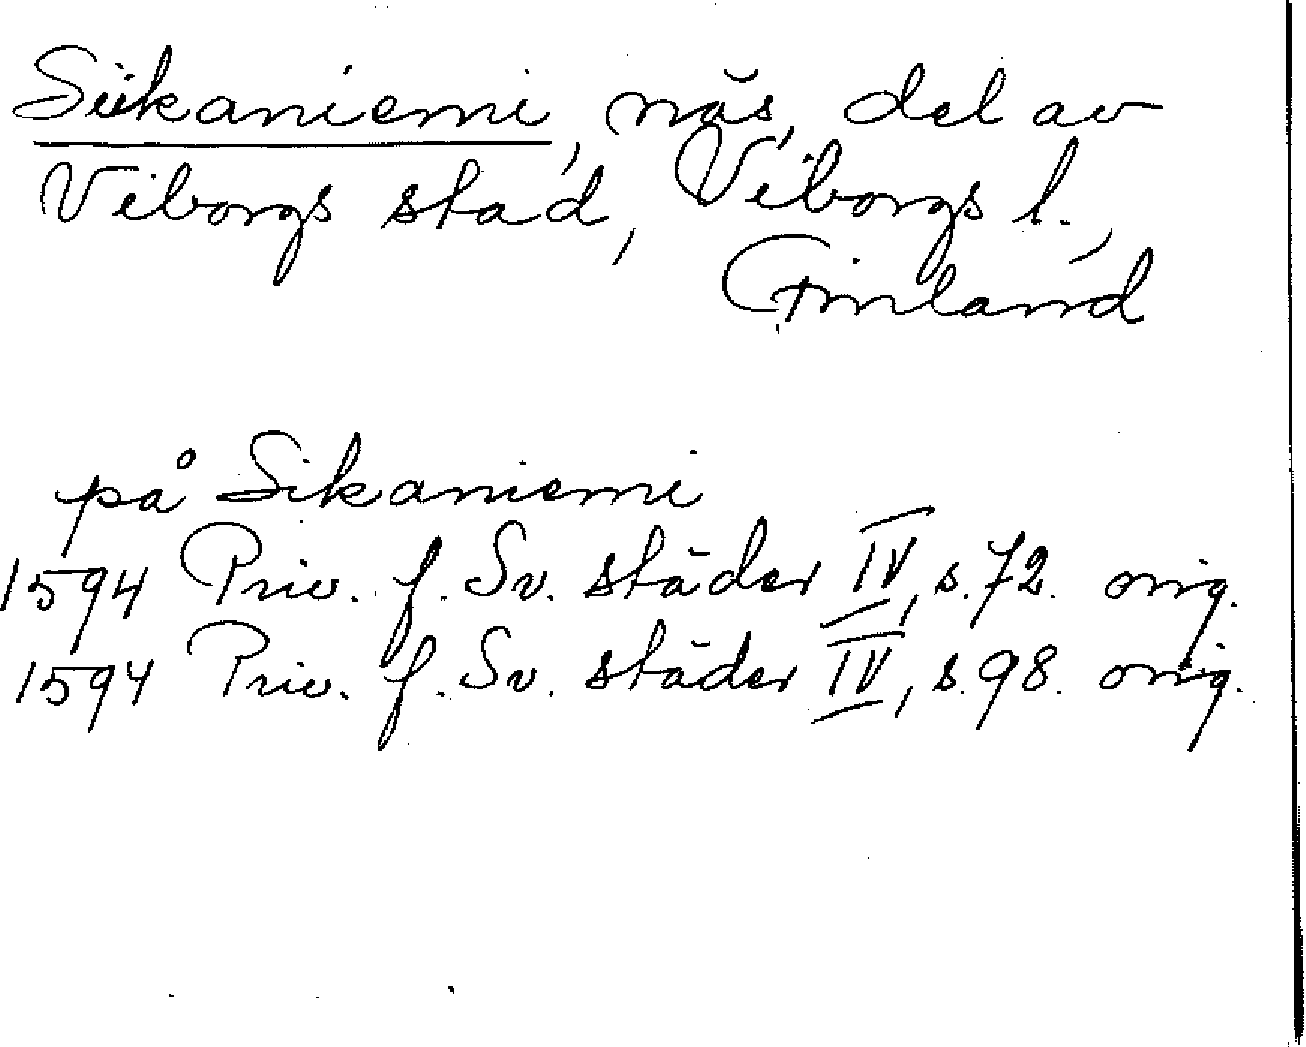 Siikaniemi, näs, del av
Viborgs stad, Viborgs l.,
Finland
på Sikaniemi
1594 Priv. f. Sv. städer IV, s. 72. orig.
1594 Priv. f. Sv. städer IV, s. 98. orig.